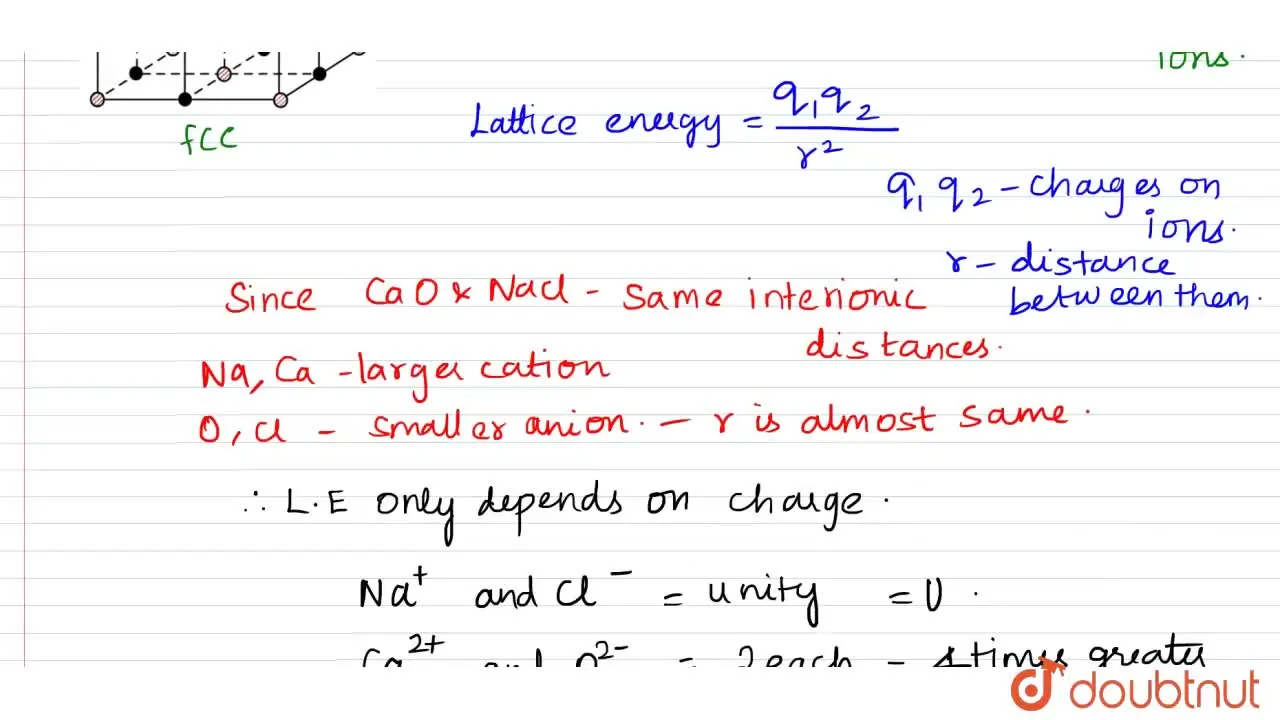 ions.
fCC
Lattice energy = q1q2/r2
q1 q2 - charges on
ions.
r - distance
between them.
Since CaO & NaCl - same interionic
distances.
Na, Ca - larger cation
O, Cl - smaller anion. - r is almost same.
∴ L.E only depends on charge.
Na+ and Cl- = unity = U.
Ca2+ and O2- = 2 each - 4 times greater
doubtnut